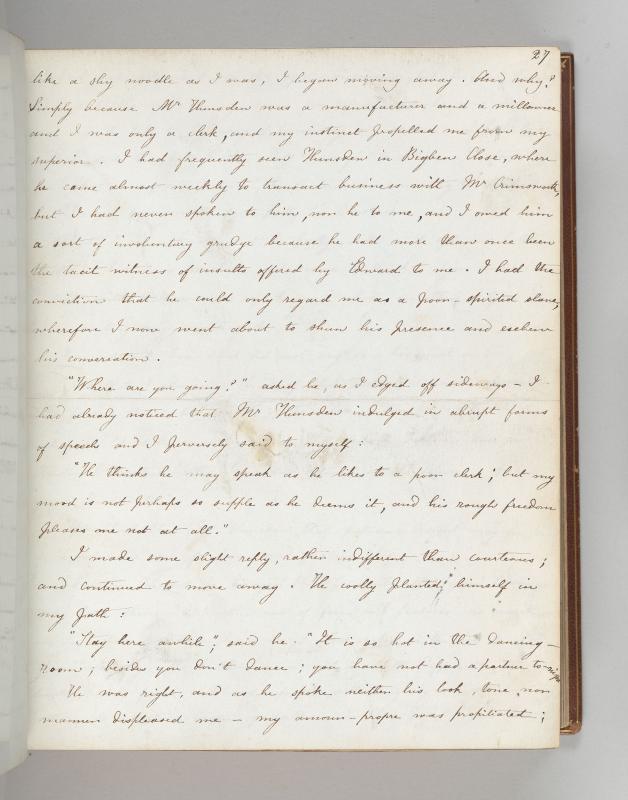 27
like a shy noodle as I was, I began moving away. And why?
Simply because Mr Hunsden was a manufacturer and a millowner
and I was only a clerk, and my instinct propelled me from my
superior. I had frequently seen Hunsden in Bigben Close, where
he came almost weekly to transact business with Mr Crimsworth,
but I had never spoken to him, nor he to me, and I owed him
a sort of involuntary grudge because he had more than once been
the tacit witness of insults offered by Edward to me. I had the
conviction that he could only regard me as a poor-spirited slave,
wherefore I now went about to shun his presence and eschew
his conversation.
"Where are you going?" asked he, as I edged off sideways - I
had already noticed that Mr Hunsden indulged in abrupt forms
of speech and I perversely said to myself:
"He thinks he may speak as he likes to a poor clerk; but my
mood is not perhaps so supple as he deems it, and his rough freedom
pleases me not at all."
I made some slight reply, rather indifferent than courteous;
and continued to move away. He coolly planted himself in
my path:
"Stay here awhile", said he. "It is so hot in the dancing-
room; besides you don't dance; you have not had a partner to-night
He was right, and as he spoke neither his look, tone, nor
manner displeased me - my amour-propre was propitiated;